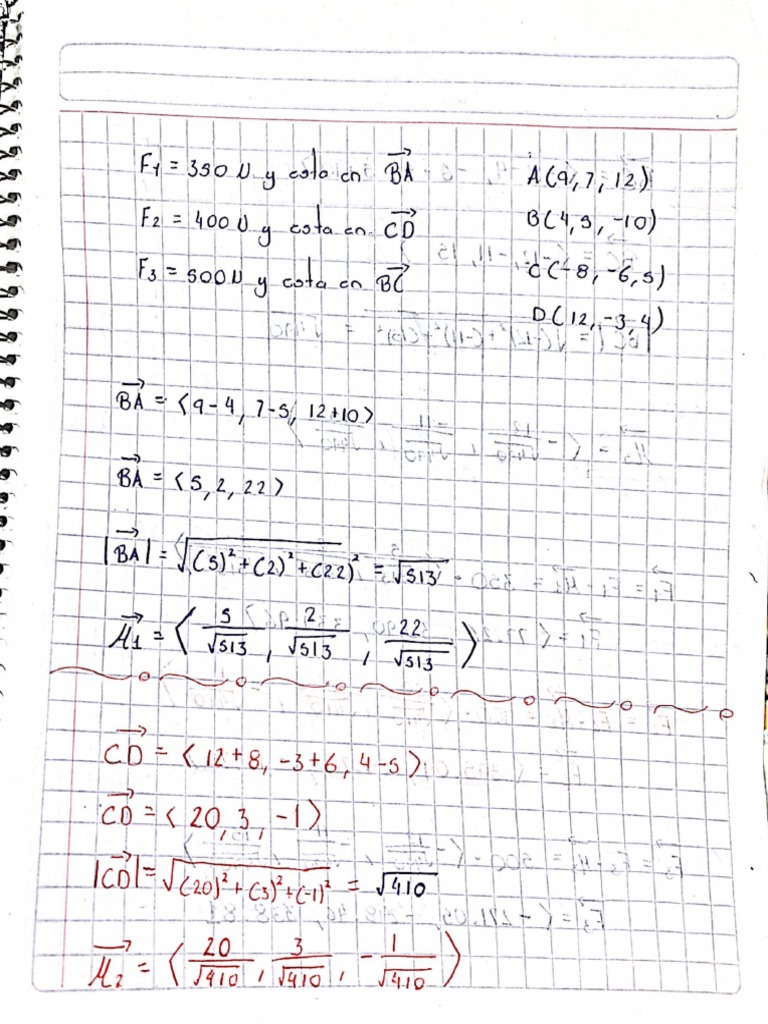 F1 = 350 N y esta en BA A(9, 7, 12)
F2 = 400 N y esta en CD B(4, 5, -10)
F3 = 500 N y esta en BC C(-8, -6, 5)
D(12, -3, 4)
BA = ⟨9-4, 7-5, 12+10⟩
BA = ⟨5, 2, 22⟩
|BA| = √(5)² + (2)² + (22)² = √513
μ1 = ⟨5/√513, 2/√513, 22/√513⟩
CD = ⟨12+8, -3+6, 4-5⟩
CD = ⟨20, 3, -1⟩
|CD| = √(20)² + (3)² + (-1)² = √410
μ2 = ⟨20/√410, 3/√410, -1/√410⟩